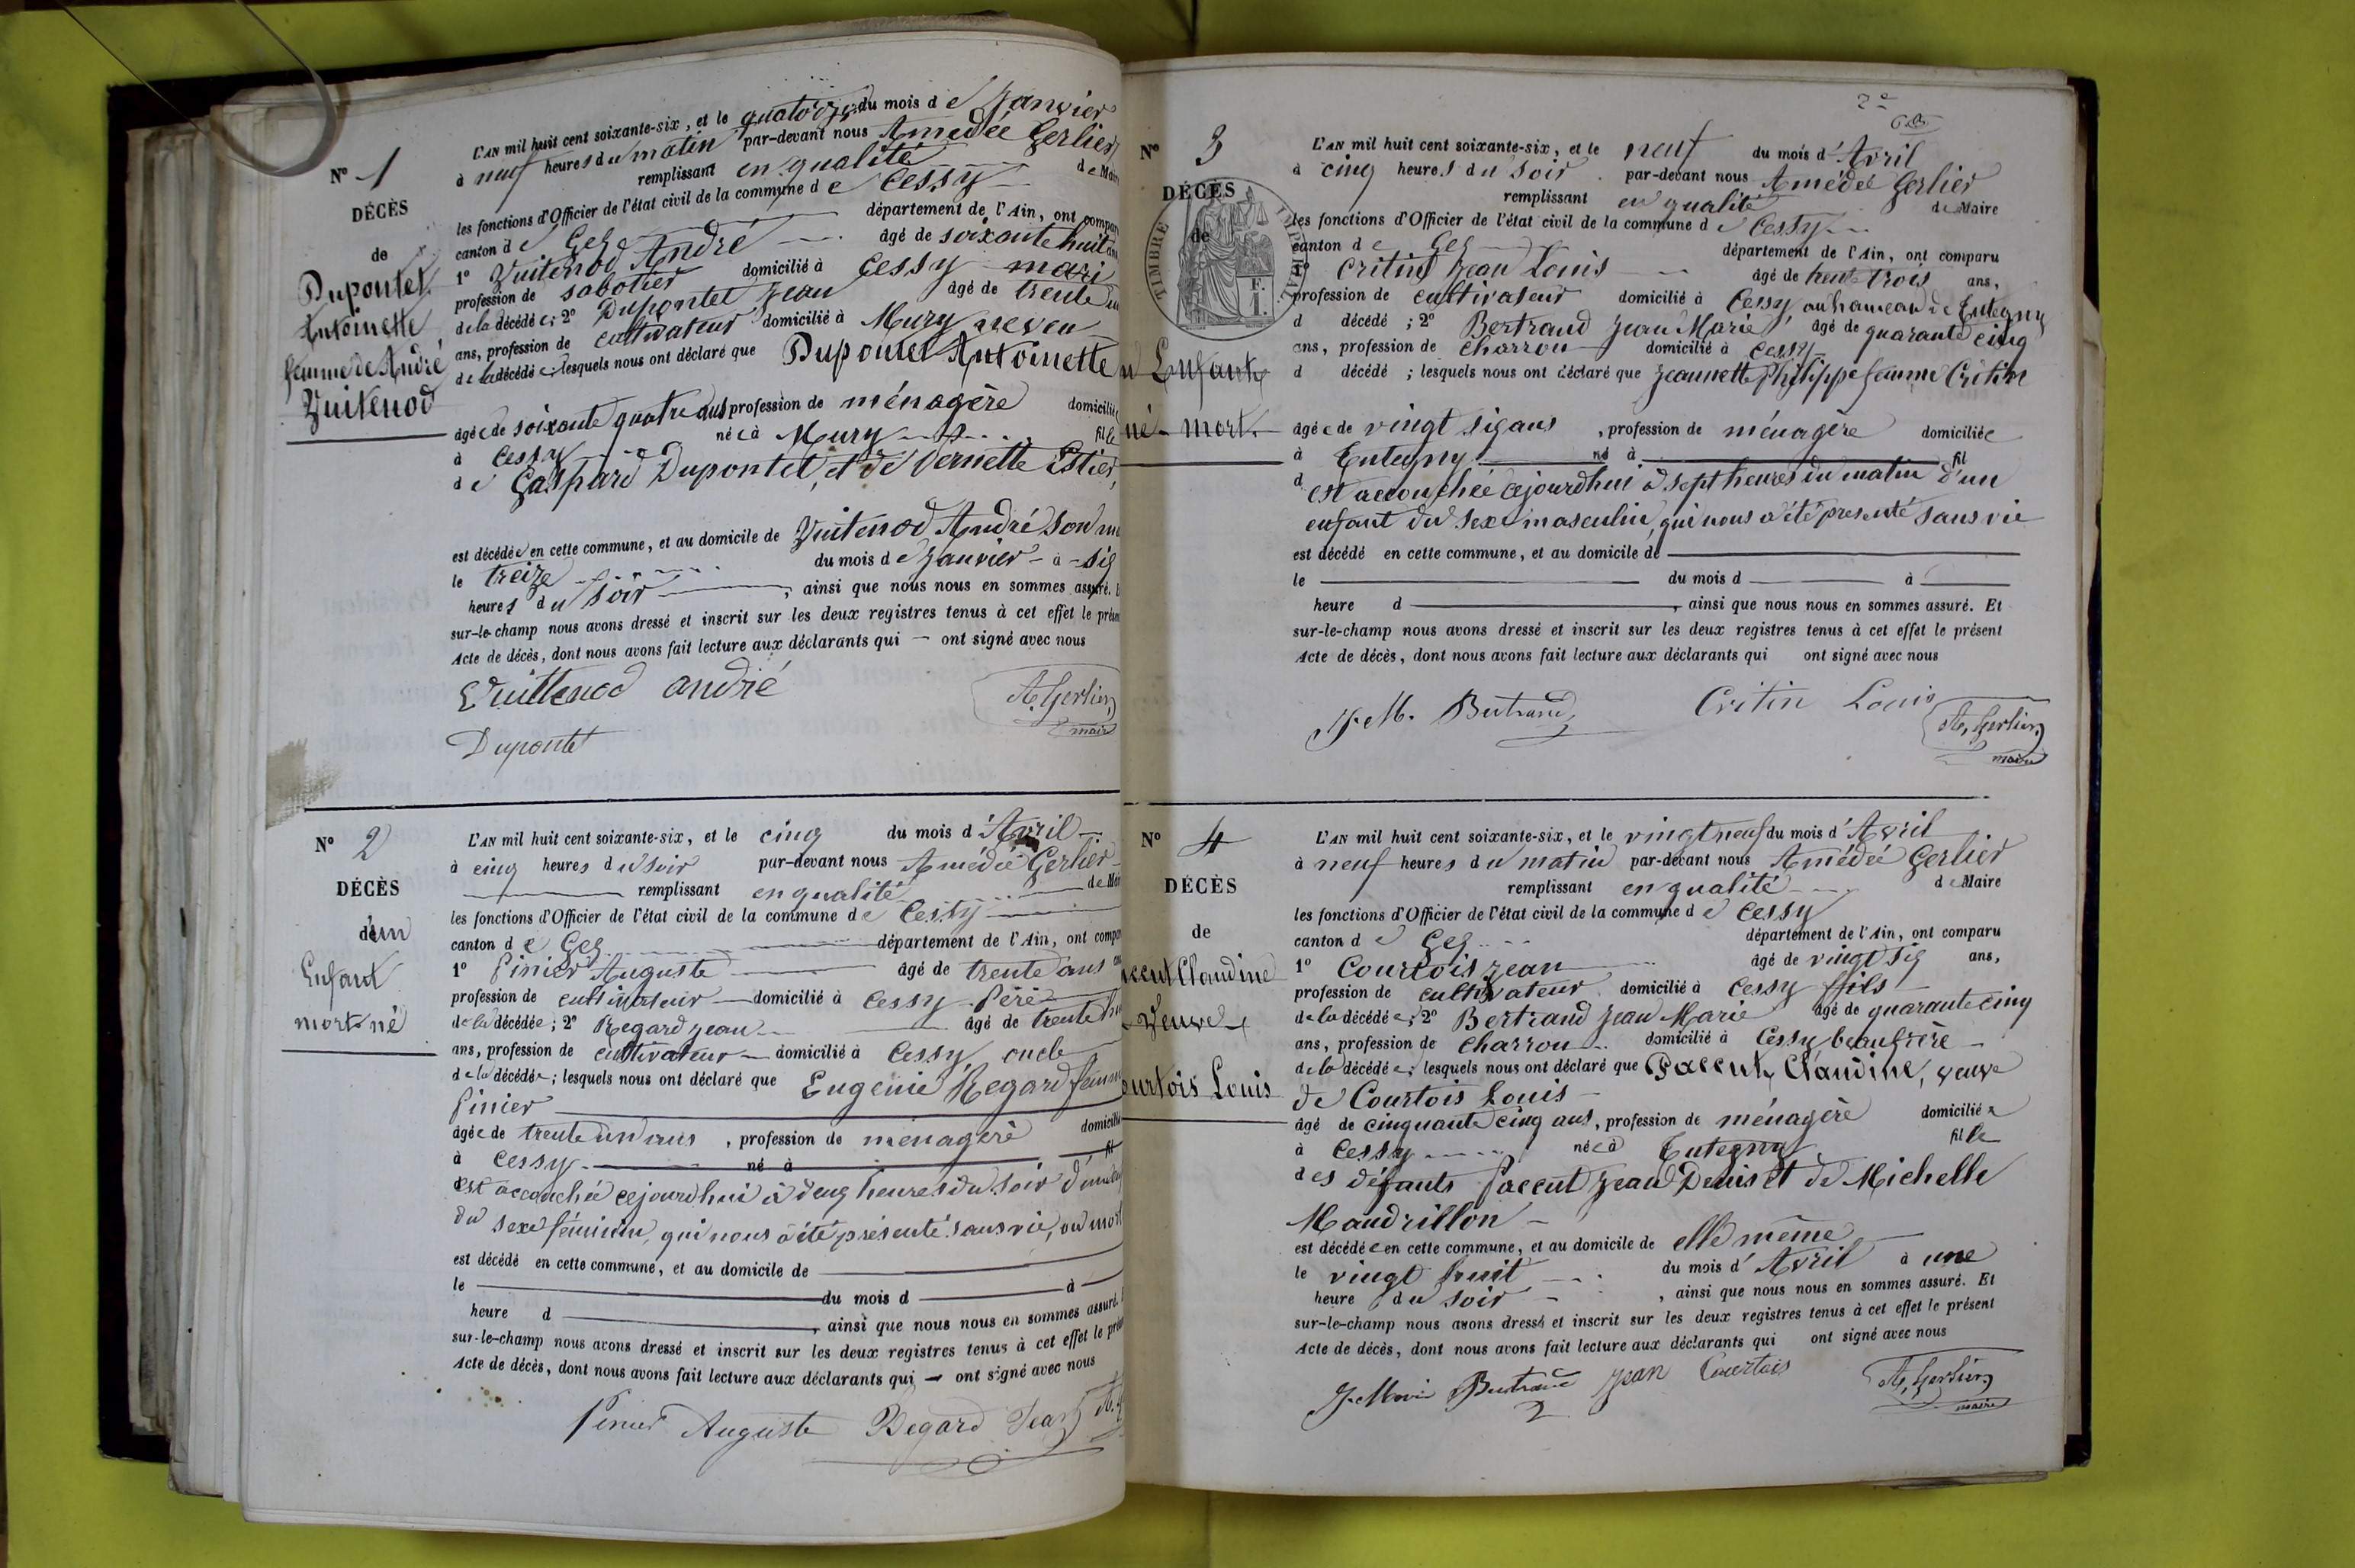 N° 1
DÉCÈS
de
Dupontet
Antoinette,
femme de André
Vuitenod
L'AN mil huit cent soixante-six, et le quatorze du mois de Janvier
à neuf heures du matin par-devant nous Amédée Gerlier
remplissant en qualité de Mair
les fonctions d'Officier de l'état civil de la commune de Cessy
canton de Gex département de l'Ain, ont compar
1° Vuitenod André âgé de soixante huit ans
profession de sabotier domicilié à Cessy mari
de la décédée; 2° Dupontet Jean âgé de trente
ans, profession de cultivateur domicilié à Mury neveu
de la décédée; lesquels nous ont déclaré que Dupontet Antoinette
âgée de soixante quatre ans profession de ménagère domiciliée
à Cessy née à Mury fille
de Gaspard Dupontet, et de Pernette Estier,
est décédée en cette commune, et au domicile de Vuitenod André son
le treize du mois de Janvier à six
heures du soir, ainsi que nous nous en sommes assuré.
sur-le-champ nous avons dressé et inscrit sur les deux registres tenus à cet effet le présen
Acte de décès, dont nous avons fait lecture aux déclarants qui ont signé avec nous
Vuittenod andré A. Gerlier
maire
Dupontet
N° 2
DÉCÈS
d'un
Enfant
mort né
L'AN mil huit cent soixante-six, et le cinq du mois d'Avril
à cinq heures du soir par-devant nous Amédée Gerlier
remplissant en qualité de Mai
les fonctions d'Officier de l'état civil de la commune de Cessy
canton de Gex département de l'Ain, ont compa
1° Pinier Auguste âgé de trente ans
profession de cultivateur domicilié à Cessy Père
de la décédée; 2° Regard Jean âgé de trente
ans, profession de cultivateur domicilié à Cessy, oncle
de la décédée; lesquels nous ont déclaré que Eugénie Regard femme
Pinier
âgée de trente un ans, profession de ménagère domicilié
à Cessy né à fil
est accouchée cejourdhui à deux heures du soir
du sexe féminin, qui nous a été présenté sans vie, ou mort
est décédé en cette commune, et au domicile de
le du mois d à
heure d, ainsi que nous nous en sommes assuré.
sur-le-champ nous avons dressé et inscrit sur les deux registres tenus à cet effet le prés
Acte de décès, dont nous avons fait lecture aux déclarants qui ont signé avec nous
Pinier Auguste Regard Jean
2e
N° 3
DÉCÈS
de
TIMBRE IMPERIAL
F. 1.
Enfant
né mort
L'AN mil huit cent soixante-six, et le neuf du mois d'Avril
à cinq heures du soir par-devant nous Amédée Gerlier
remplissant en qualité de Maire
les fonctions d'Officier de l'état civil de la commune de Cessy
canton de Gex département de l'Ain, ont comparu
1° Critin Jean Louis âgé de trente trois ans,
profession de cultivateur domicilié à Cessy au hameau de Tutegny
d décédé; 2° Bertrand Jean Marie âgé de quarante cinq
ans, profession de charron domicilié à Cessy
d décédé; lesquels nous ont déclaré que Jeannette Philippe femme Critin
âgée de vingt six ans, profession de ménagère domiciliée
à Tutegny né à fil
d est accouchée cejourdhui à sept heures du matin d'un
enfant du sexe masculin, qui nous a été présenté sans vie
est décédé en cette commune, et au domicile de
le du mois d à
heure d, ainsi que nous nous en sommes assuré. Et
sur-le-champ nous avons dressé et inscrit sur les deux registres tenus à cet effet le présent
Acte de décès, dont nous avons fait lecture aux déclarants qui ont signé avec nous
J. M. Bertrand Critin Louis A. Gerlier
maire
N° 4
DÉCÈS
de
Claudine
Veuve
ourtois Louis
L'AN mil huit cent soixante-six, et le vingt neuf du mois d'Avril
à neuf heures du matin par-devant nous Amédée Gerlier
remplissant en qualité de Maire
les fonctions d'Officier de l'état civil de la commune de Cessy
canton de Gex département de l'Ain, ont comparu
1° Courtois Jean âgé de vingt six ans,
profession de cultivateur domicilié à Cessy fils
de la décédée; 2° Bertrand Jean Marie âgé de quarante cinq
ans, profession de charron domicilié à Cessy beaufrère
de la décédée; lesquels nous ont déclaré que Paccut Claudine, veuve
de Courtois Louis
âgé de cinquante cinq ans, profession de ménagère domiciliée
à Cessy née à Tutegny fille
des défunts Paccut Jean Denis et de Michelle
Mandrillon
est décédée en cette commune, et au domicile de elle même
le vingt huit du mois d'Avril à une
heure du soir, ainsi que nous nous en sommes assuré. Et
sur-le-champ nous avons dressé et inscrit sur les deux registres tenus à cet effet le présent
Acte de décès, dont nous avons fait lecture aux déclarants qui ont signé avec nous
J. Marie Bertrand Jean Courtois A. Gerlier
maire